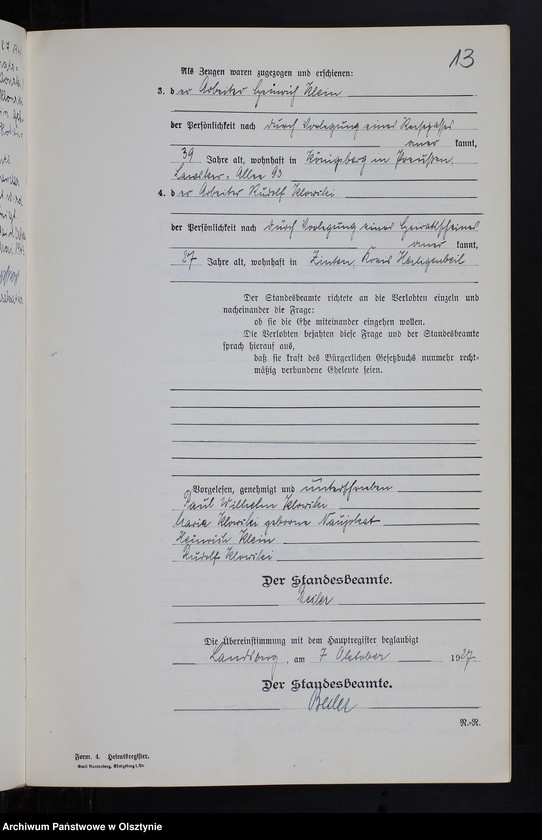 13
Als Zeugen waren zugezogen und erschienen:
3. der Arbeiter Heinrich Klein
der Persönlichkeit nach durch Vorlegung eines Reisepasses
aner kannt,
39 Jahre alt, wohnhaft in Königsberg in Preußen,
Allee 93
4. der Arbeiter Rudolf Klowski
der Persönlichkeit nach durch Vorlegung eines Heiratsscheines
aner kannt,
27 Jahre alt, wohnhaft in Zinten, Kreis Heiligenbeil
Der Standesbeamte richtete an die Verlobten einzeln und
nacheinander die Frage:
ob sie die Ehe miteinander eingehen wollen.
Die Verlobten bejahten diese Frage und der Standesbeamte
sprach hierauf aus,
daß sie kraft des Bürgerlichen Gesetzbuchs nunmehr recht-
mäßig verbundene Eheleute seien.
Vorgelesen, genehmigt und unterschrieben
Paul Wilhelm Klowski
Maria Klowski geborne Naujokat
Heinrich Klein
Rudolf Klowski
Der Standesbeamte.
Beiler
Die Übereinstimmung mit dem Hauptregister beglaubigt
Landsberg, am 7 Oktober 1927
Der Standesbeamte.
Beiler
N.-R.
Form. 4. Heiratsregister.
Emil Rautenberg, Königsberg i. Pr.
Archiwum Państwowe w Olsztynie